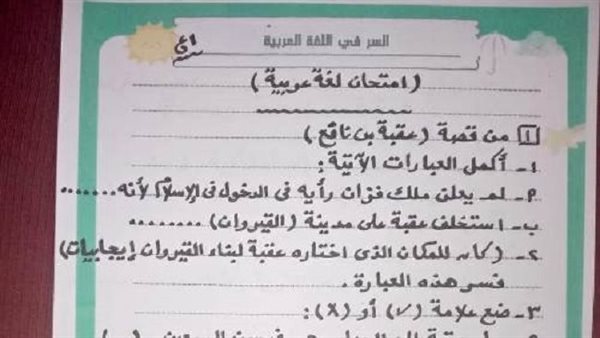 السر في اللغة العربية
(امتحان لغة عربية)
١ من قصة (عقبة بن نافع)
١- أكمل العبارات الآتية:
٩- لم يعلن ملك فزان رأيه في الدخول في الإسلام لأنه .......
ب- استخلف عقبة على مدينة (القيروان) ........
٢- (كان للمكان الذي اختاره عقبة لبناء القيروان إيجابيات)
فسر هذه العبارة .
٣- ضع علامة (√) أو (X):